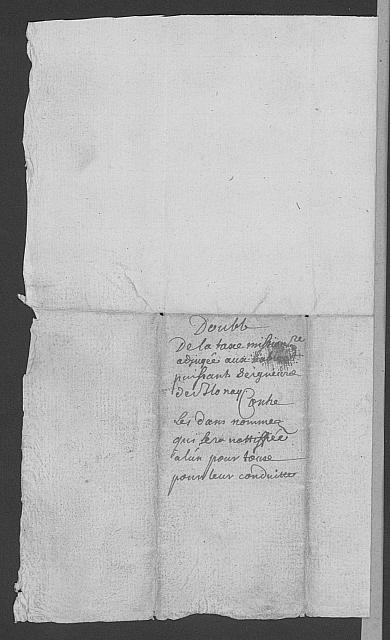 Double
De la taxe
adjugée aux
puissant Seigneurs
de Blonay
Contre
Les dans nommez
qui sera nottiffiée
alun pour tous
pour leur conduitte